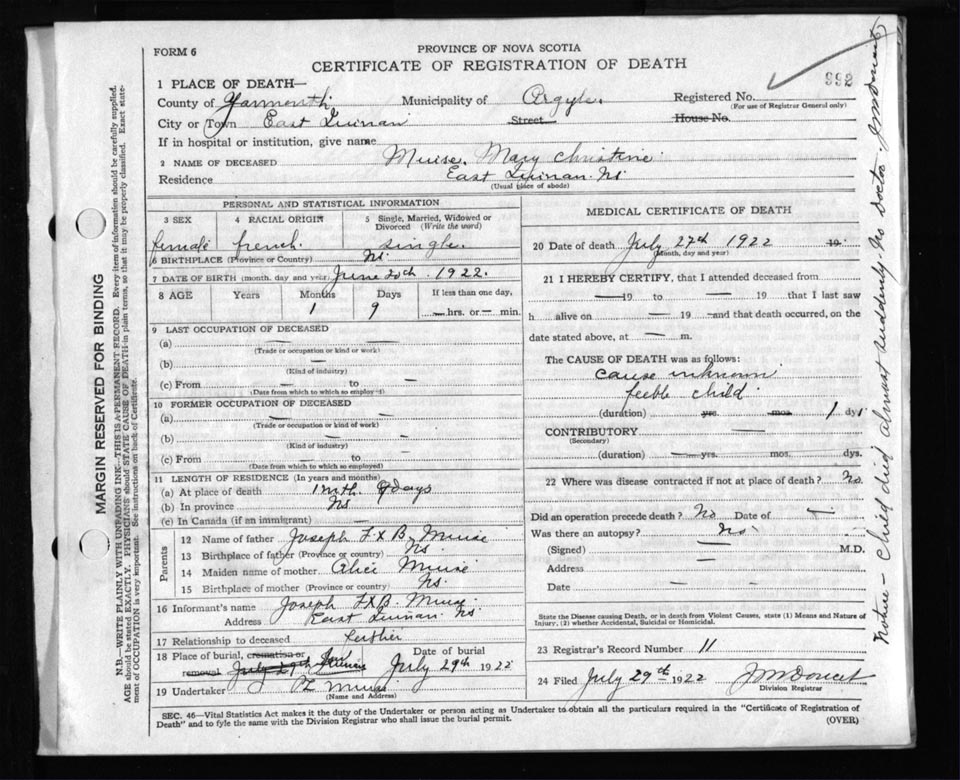 FORM 6
PROVINCE OF NOVA SCOTIA
CERTIFICATE OF REGISTRATION OF DEATH
992
1 PLACE OF DEATH—
County of Yarmouth Municipality of Argyle. Registered No.
(For use of Registrar General only)
City or Town East Quinan Street House No.
If in hospital or institution, give name
2 NAME OF DECEASED Muise, Mary Christine
Residence East Quinan. Ns.
(Usual place of abode)
PERSONAL AND STATISTICAL INFORMATION
3 SEX 4 RACIAL ORIGIN 5 Single, Married, Widowed or Divorced (Write the word)
female french. single.
6 BIRTHPLACE (Province or Country) Ns.
7 DATE OF BIRTH (month, day and year) June 20th. 1922.
8 AGE Years Months Days If less than one day,
1 9 — hrs. or — min.
9 LAST OCCUPATION OF DECEASED
(a) —
(Trade or occupation or kind or work)
(b) —
(Kind of industry)
(c) From — to —
(Date from which to which so employed)
10 FORMER OCCUPATION OF DECEASED
(a) —
(Trade or occupation or kind of work)
(b) —
(Kind of industry)
(c) From — to
(Date from which to which so employed)
11 LENGTH OF RESIDENCE (In years and months)
(a) At place of death 1 mth. 9 days
(b) In province Ns
(c) In Canada (if an immigrant) —
Parents
12 Name of father Joseph F. X B. Muise
13 Birthplace of father (Province or country) Ns
14 Maiden name of mother Alice Muise
15 Birthplace of mother (Province or country) Ns.
16 Informant's name Joseph F X B. Muise
Address East Quinan Ns.
17 Relationship to deceased Father
18 Place of burial, cremation or removal July 29th Quinan
Date of burial July 29th 1922
19 Undertaker Muise
(Name and Address)
MEDICAL CERTIFICATE OF DEATH
20 Date of death July 27th 1922 19
(Month, day and year)
21 I HEREBY CERTIFY, that I attended deceased from
— 19 to — 19 that I last saw
h alive on — 19 — and that death occurred, on the
date stated above, at — m.
The CAUSE OF DEATH was as follows:
cause unknown
feeble child
(duration) yrs. mos. 1 dys
CONTRIBUTORY —
(Secondary)
(duration) — yrs. mos. dys.
22 Where was disease contracted if not at place of death? No.
Did an operation precede death? No Date of —
Was there an autopsy? No
(Signed) — M.D.
Address —
Date — —
State the Disease causing Death, or in death from Violent Causes, state (1) Means and Nature of Injury, (2) whether Accidental, Suicidal or Homicidal.
23 Registrar's Record Number 11
24 Filed July 29th 1922 J M Doucet
Division Registrar
SEC. 46—Vital Statistics Act makes it duty of the Undertaker or person acting as Undertaker to obtain all the particulars required in the "Certificate of Registration of
Death" and to fyle the same with the Division Registrar who shall issue the burial permit.
(OVER)
MARGIN RESERVED FOR BINDING
N.B.—WRITE PLAINLY WITH UNFADING INK—THIS IS A PERMANENT RECORD. Every item of information should be carefully supplied.
AGE should be stated EXACTLY. PHYSICIANS should STATE CAUSE OF DEATH in plain terms, so that it may be properly classified. Exact state-
ment of OCCUPATION is very important. See instructions on back of Certificate.
Notice – Child died almost suddenly. No doctor. J M Doucet